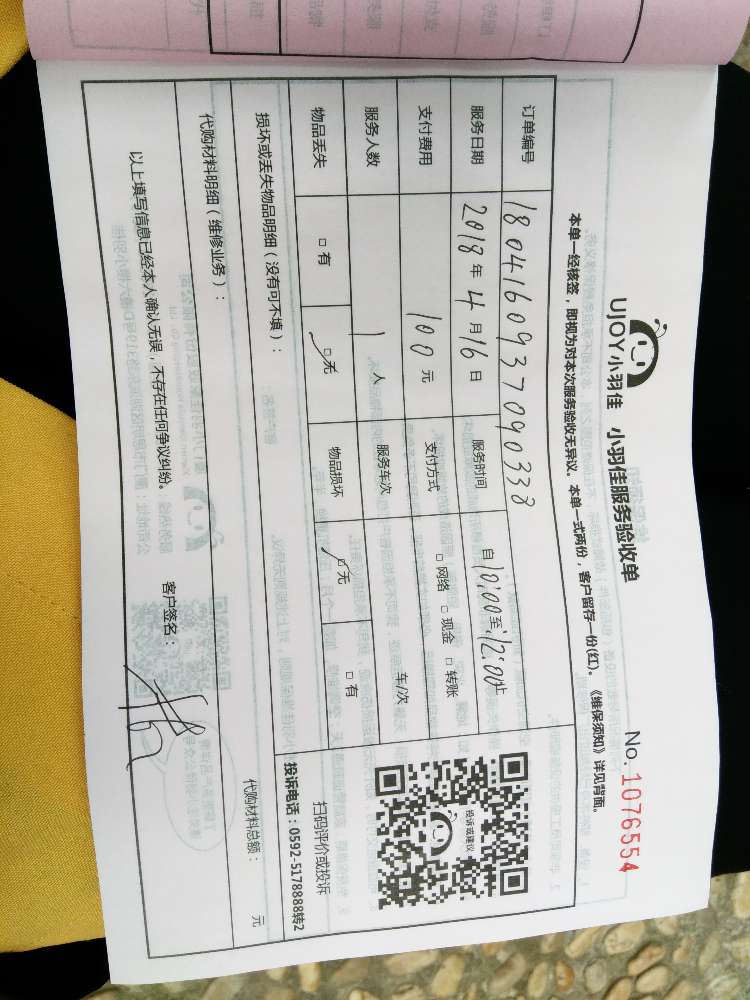 UJOY小羽佳 小羽佳服务验收单
No. 1076554
本单一经核签，即视为对本次服务验收无异议。本单一式两份，客户留存一份(红)。《维保须知》详见背面。
订单编号 180416093709033８
服务日期 2018年4月16日 服务时间 自10:00至12:00止
支付费用 100元 支付方式 □网络 □现金 □转账
服务人数 1人 服务车次 车/次
物品丢失 □有 □无 物品损坏 □无 □有
投诉或建议
扫码评价或投诉
投诉电话：0592-5178888转2
损坏或丢失物品明细（没有可不填）：
代购材料明细（维修业务）：
代购材料总额： 元
以上填写信息已经本人确认无误，不存在任何争议纠纷。
客户签名：